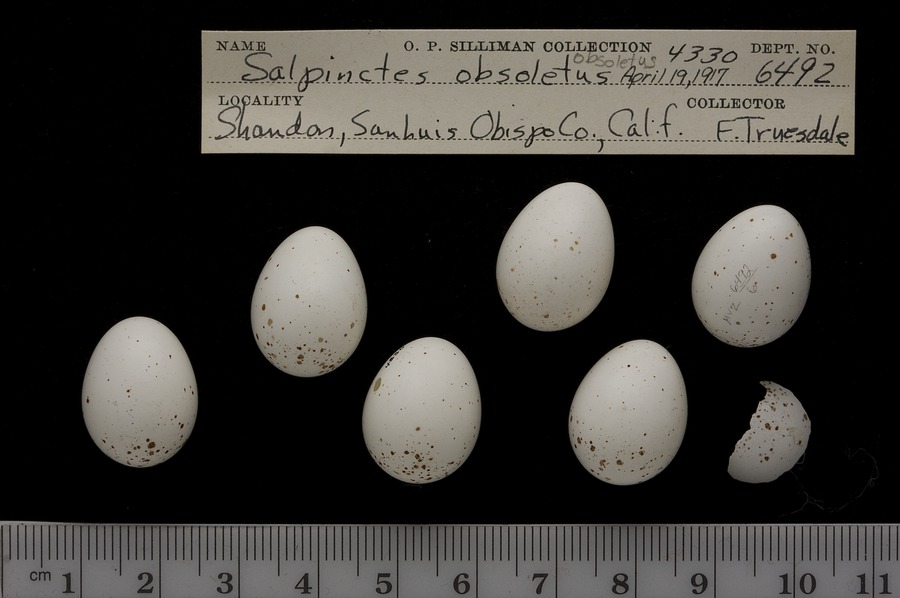 NAME O. P. SILLIMAN COLLECTION 4330 DEPT. NO.
Salpinctes obsoletus obsoletus April 19, 1917 6492
LOCALITY COLLECTOR
Shandon, San Luis Obispo Co., Calif. E. Truesdale
MVZ 6492
6
cm 1 2 3 4 5 6 7 8 9 10 11